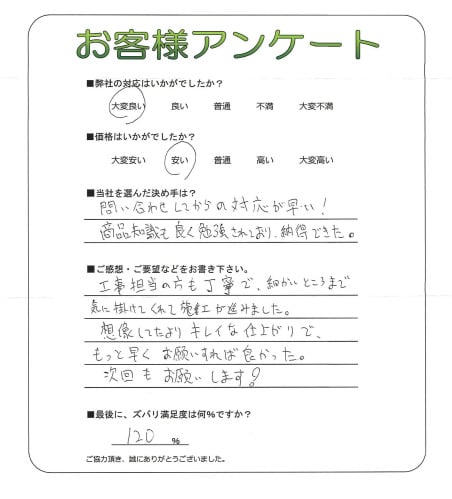 お客様アンケート
■弊社の対応はいかがでしたか？
大変良い 良い 普通 不満 大変不満
■価格はいかがでしたか？
大変安い 安い 普通 高い 大変高い
■当社を選んだ決め手は？
問い合わせしてからの対応が早い！
商品知識も良く勉強されており、納得できた。
■ご感想・ご要望などをお書き下さい。
工事担当の方も丁寧で、細かいところまで
気に掛けてくれて施工が進みました。
想像してたよりキレイな仕上がりで、
もっと早くお願いすれば良かった。
次回もお願いします？
■最後に、ズバリ満足度は何％ですか？
120 ％
ご協力頂き、誠にありがとうございました。